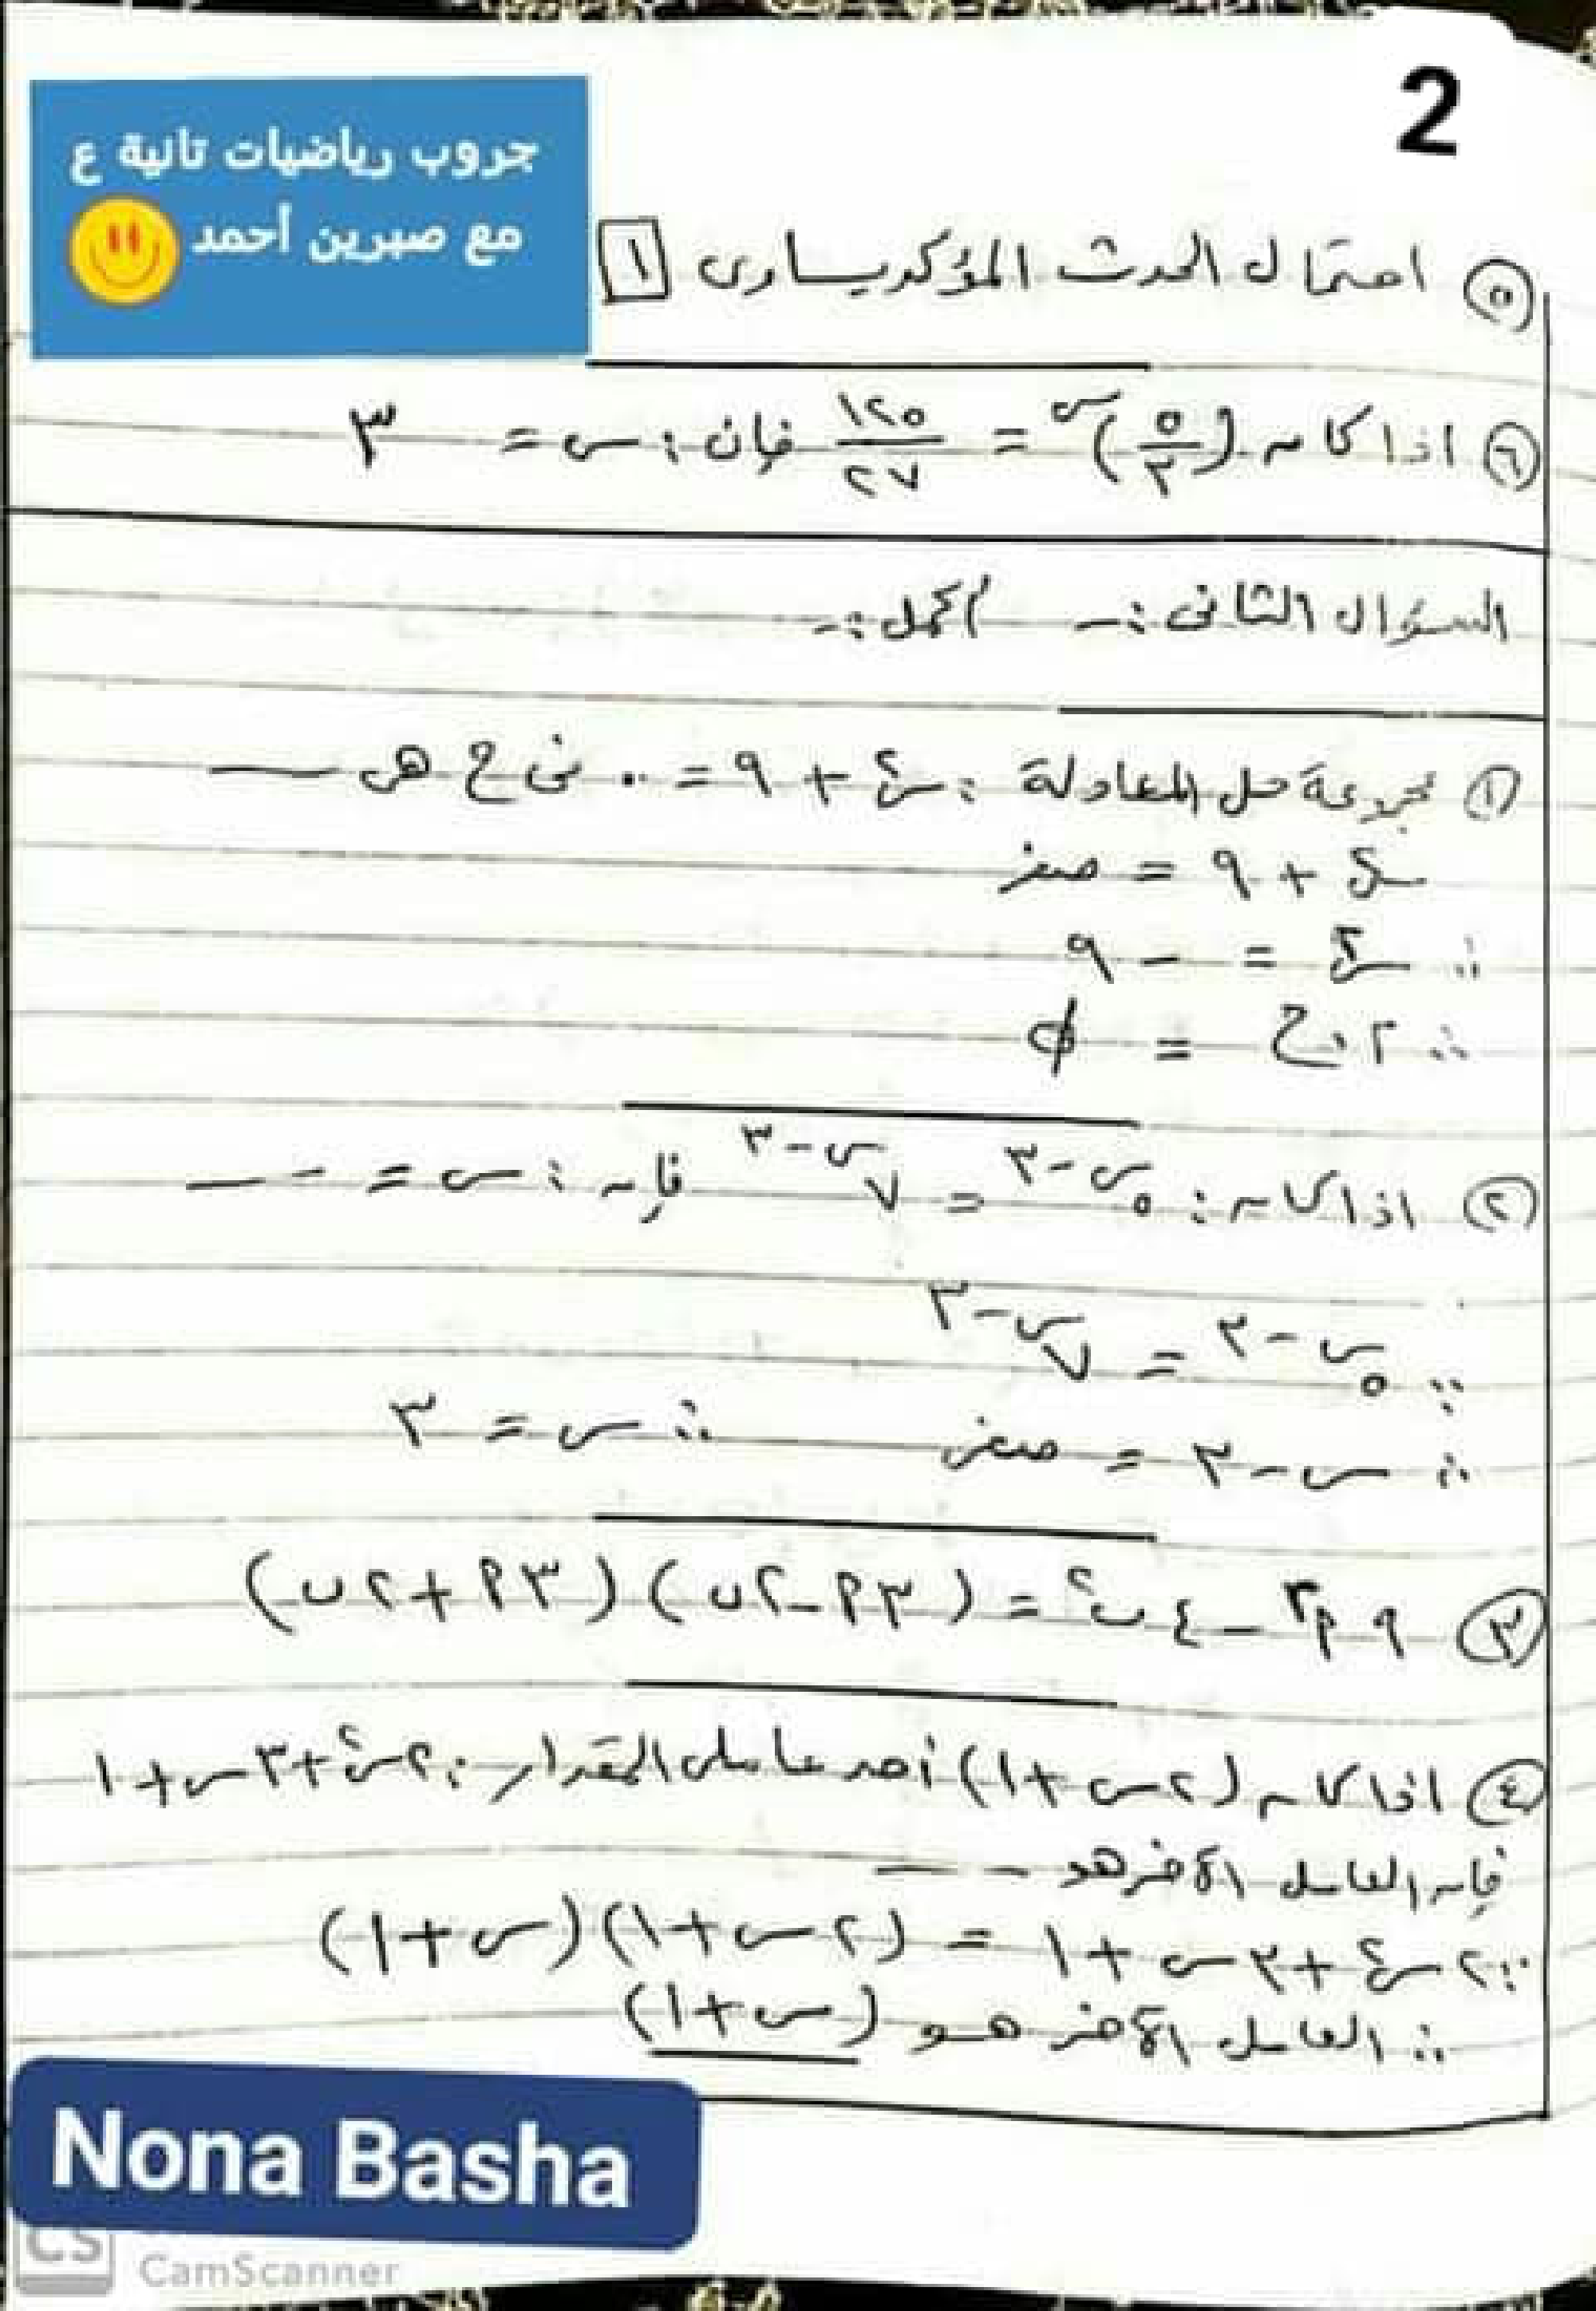 2
جروب رياضيات تانية ع
مع صبرين أحمد
٥ احتمال الحدث المؤكد يساوى ١
٦ اذا كان (٥/٣)^س = ١٢٥/٢٧ فإن : س = ٣
السؤال الثانى :- أكمل :-
١ مجموعة حل المعادلة : س² + ٩ = ٠ فى ح هى —
س² + ٩ = صفر
∴ س² = - ٩
∴ م . ح = ϕ
٢ اذا كان : ٥^(س-٣) = ٧^(س-٣) فإن : س = - —
∵ ٥^(س-٣) = ٧^(س-٣)
∴ س - ٣ = صفر ∴ س = ٣
٣ ٩ م² - ٤ ب² = (٣م - ٢ب) (٣م + ٢ب)
٤ اذا كان (٢س + ١) أحد عاملى المقدار : ٢س² + ٣س + ١
فإن العامل الآخر هو - —
∵ ٢س² + ٣س + ١ = (٢س + ١) (س + ١)
∴ العامل الآخر هو (س + ١)
Nona Basha
CS
CamScanner